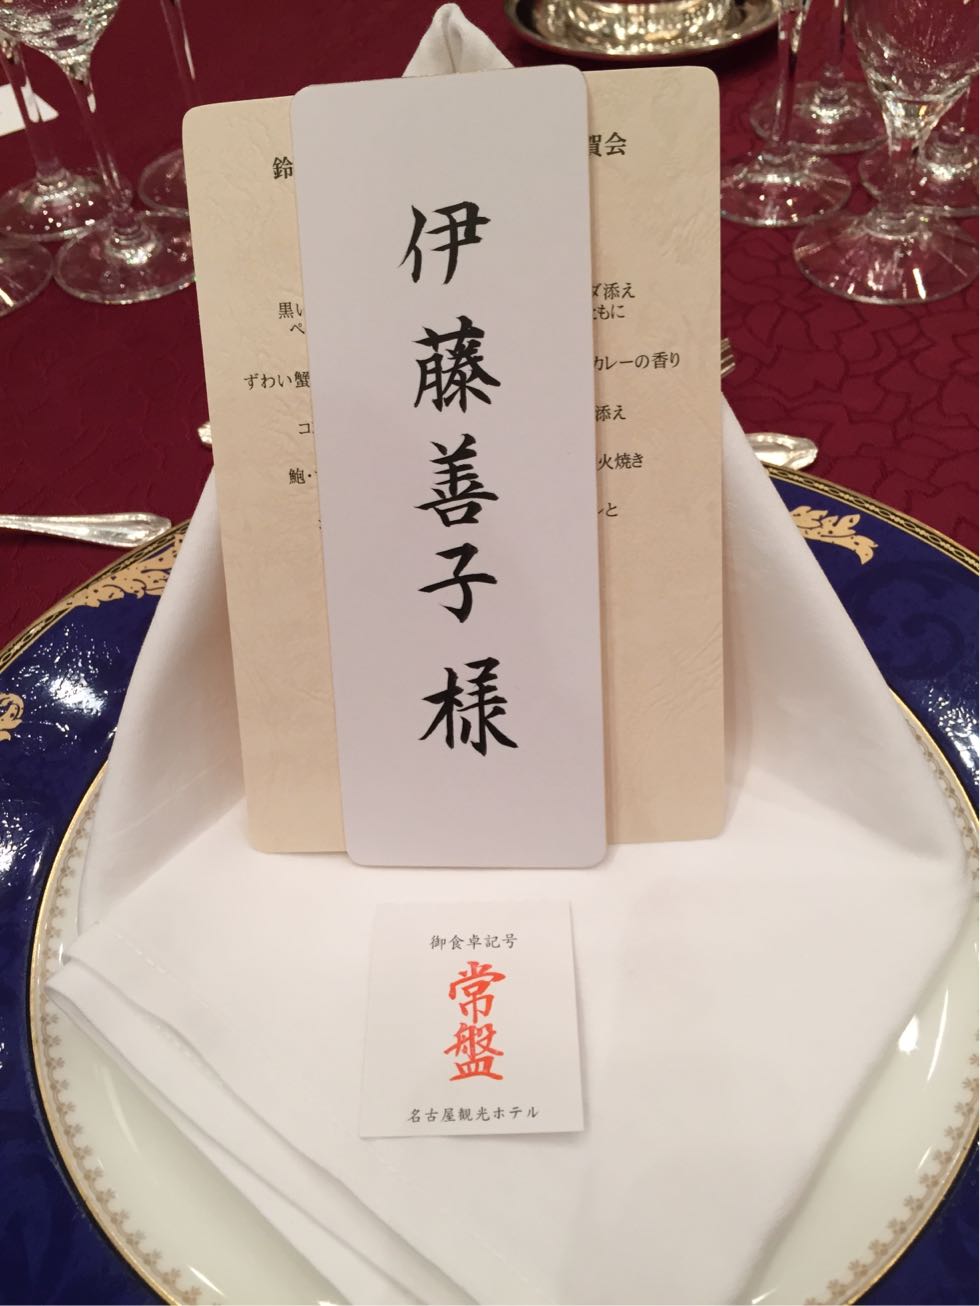 鈴
賀会
黒い
ダ添え
ペ
ともに
ずわい蟹
カレーの香り
コ
添え
鮑・
火焼き
と
伊藤善子様
御食卓記号
常盤
名古屋観光ホテル